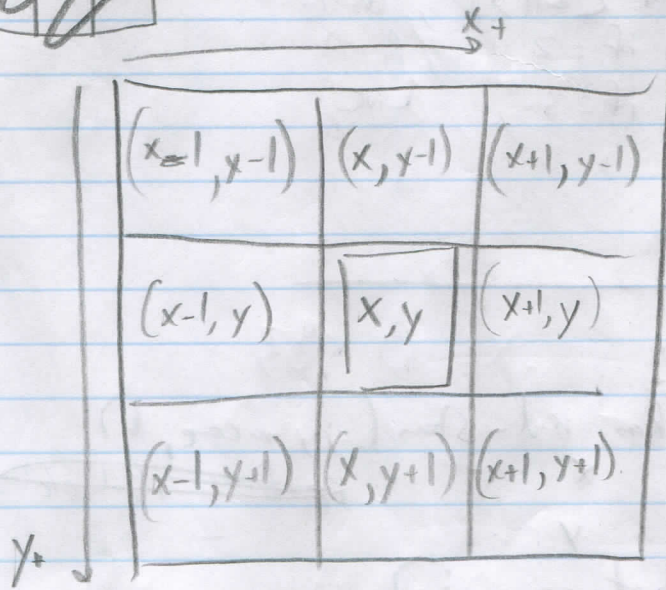 x +
(x-1, y-1) (x, y-1) (x+1, y-1)
(x-1, y) x, y (x+1, y)
(x-1, y+1) (x, y+1) (x+1, y+1)
y+